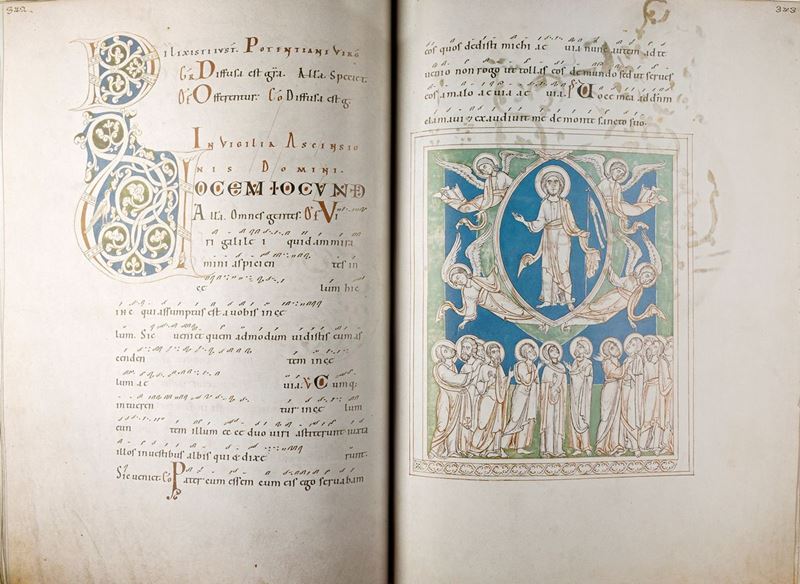 322
DILIXISTI IVST. POTENTIANE VIRG
GR Diffusa est gra. Alla. Specie t.
Of Offerentur. Co Diffusa est g
IN VIGILIA ASCENSIO
NIS DOMINI.
VOCEM IOCVND
Alla. Omnes gentes. Of Vi
ri galile i quid ammira
mini aspicien tes in
ce lum hic
ihc qui assumptus est a vobis in ce
lum. Sic veniet quem admodum vidistis eum as
cenden tem in ce
lum ae uia. V Cumq;
intueren tur in ce lum
eun tem illum ec ce duo viri astiterunt iuxta
illos in vestibus albis qui & dixe runt.
Sic veniet. Co Pater cum essem cum eis ego servabam
323
eos quos dedisti michi ae uia nunc autem ad te
venio non rogo ut tollas eos de mundo sed ut serves
eos a malo ae uia ae uia. Ps Voce mea ad dnm
clamaui & exaudivit me de monte sancto suo.